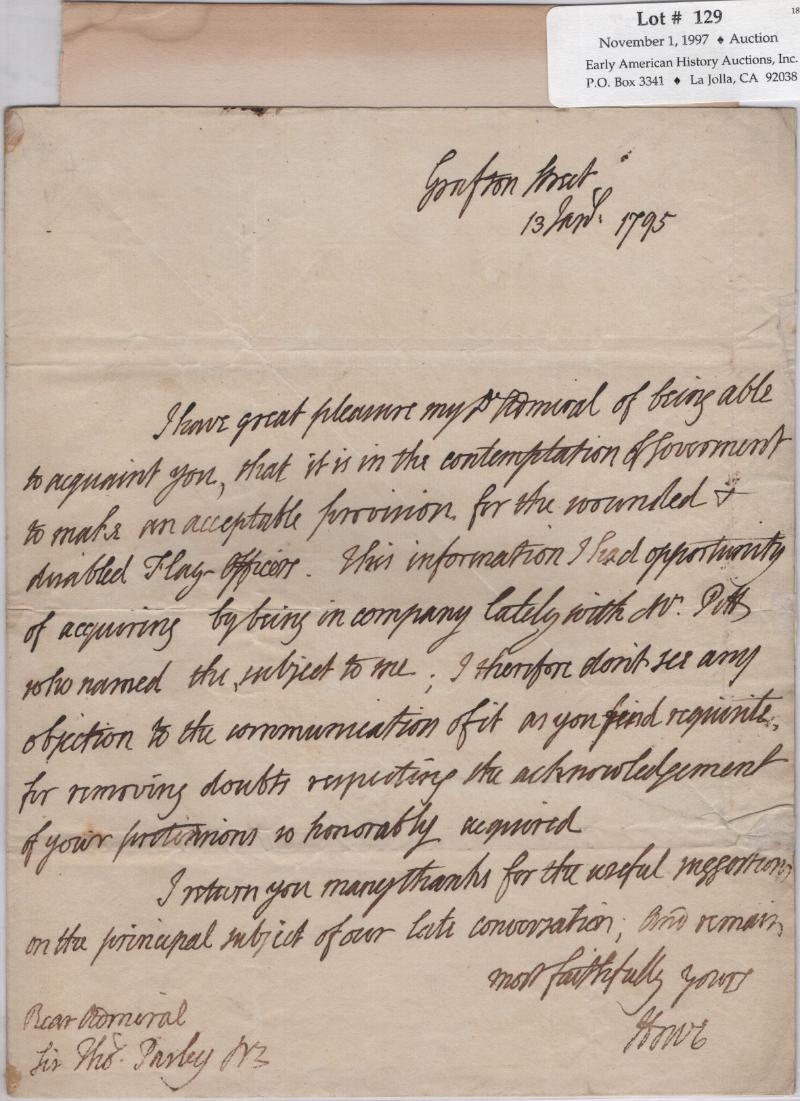 Lot # 129
18
November 1, 1997 ♦ Auction
Early American History Auctions, Inc.
P.O. Box 3341 ♦ La Jolla, CA 92038
Grafton Street
13 Jany. 1795
I have great pleasure my Dr Admiral of being able
to acquaint you, that it is in the contemplation of Goverment
to make an acceptable provision for the wounded &
disabled Flag-Officers. This information I had opportunity
of acquiring by being in company lately with Mr. Pitt
who named the subject to me; I therefore don't see any
objection to the communication of it as you find requisite,
for removing doubts respecting the acknowledgement
of your pretensions so honorably acquired
I return you many thanks for the useful suggestions
on the principal subject of our late conversation; And remain,
most faithfully yours
Howe
Rear Admiral
Sir Thos. Pasley